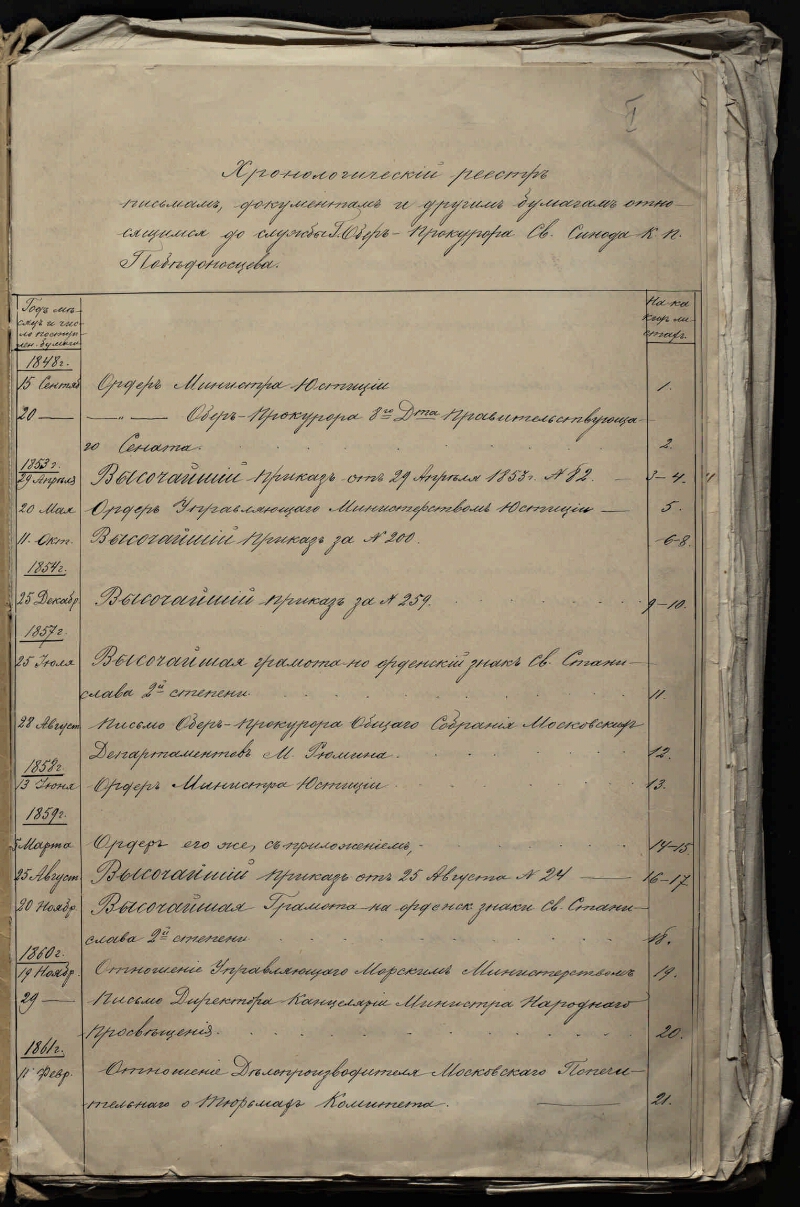 I
Хронологическій реестръ
письмамъ, документамъ и другимъ бумагамъ отно-
сящимся до службы Г. Оберъ-Прокурора Св. Синода К. П.
Побѣдоносцева.
Годъ мѣ-
сяцъ и чис-
ло поступ-
лен. бумаги
На ка
кихъ ли-
стахъ.
1848 г.
15 Сентяб Ордеръ Министра Юстиціи 1.
20 — —„— Оберъ-Прокурора 8го Дта Правительствующа-
го Сената. 2
1853 г.
29 Апрѣля ВЫСОЧАЙШІЙ приказъ отъ 29 Апрѣля 1853 г. № 82. — 3-4.
20 Мая Ордеръ Управляющаго Министерствомъ Юстиціи — 5.
11. Окт. ВЫСОЧАЙШІЙ приказъ за № 200. 6-8.
1854 г.
25 Декабр. ВЫСОЧАЙШІЙ приказъ за № 259. 9-10.
1857 г.
25 Іюля ВЫСОЧАЙШАЯ грамота но орденскій знакъ Св. Стани-
слава 2й степени 11.
28 Август Письмо Оберъ-Прокурора Общаго Собранія Московскихъ
Департаментовъ М. Рюмина. 12.
1858 г.
13 Іюня Ордеръ Министра Юстиціи 13.
1859 г.
5 Марта Ордеръ его же, съ приложеніемъ, 14-15.
25 Август. ВЫСОЧАЙШІЙ приказъ отъ 25 Августа № 24 — 16-17.
20 Ноябр ВЫСОЧАЙШАЯ Грамота на орденск знаки Св. Стани-
слава 2й степени 18.
1860 г.
19 Ноябр. Отношеніе Управляющаго Морскимъ Министерствомъ 19.
29 — Письмо Директора Канцеляріи Министра Народнаго
Просвѣщенія. 20.
1861 г.
11 Февр. Отношеніе Дѣлопроизводителя Московскаго Попечи-
тельнаго о Тюрьмахъ Комитета. — 21.